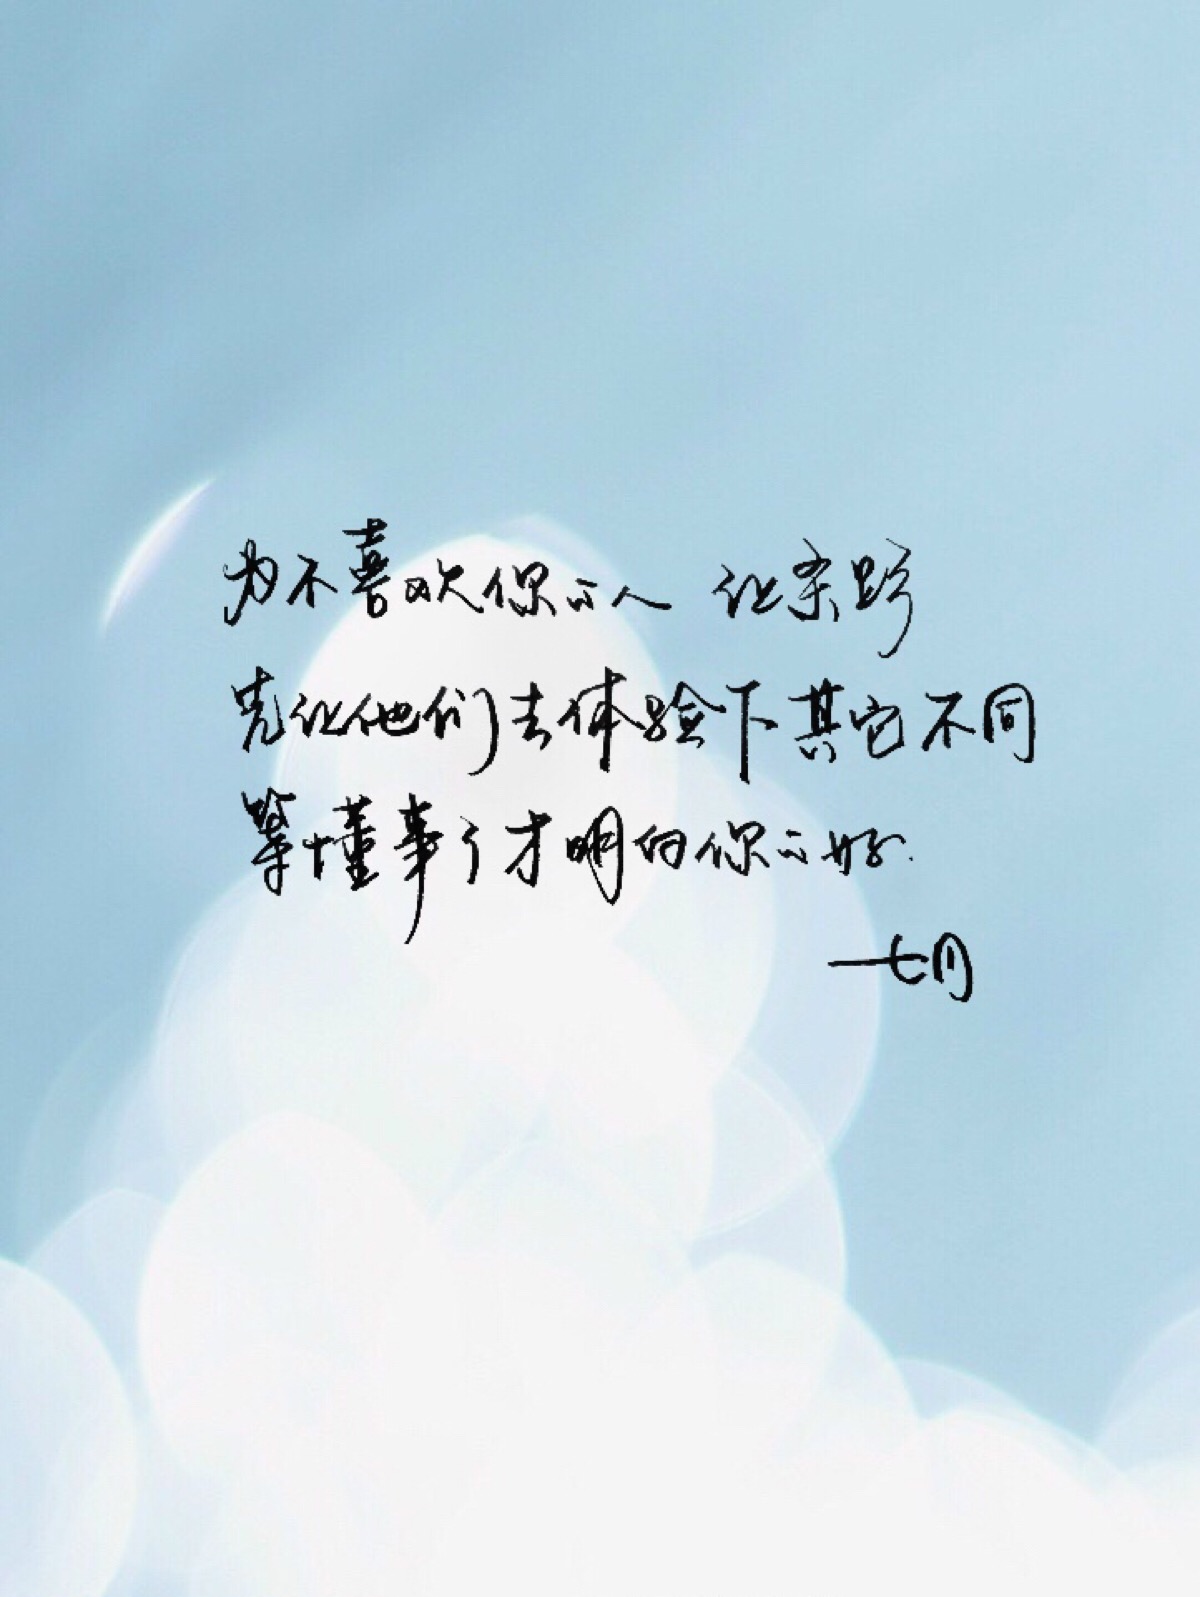 为不喜欢你的人 让条路
先让他们去体验下其它不同
等懂事了才明白你的好.
一七月